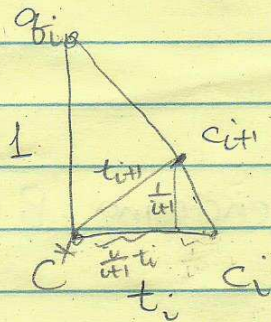 qᵢ
1
cᵢ₊₁
tᵢ₊₁
1/(i+1)
i/(i+1) tᵢ
C*
cᵢ
tᵢ